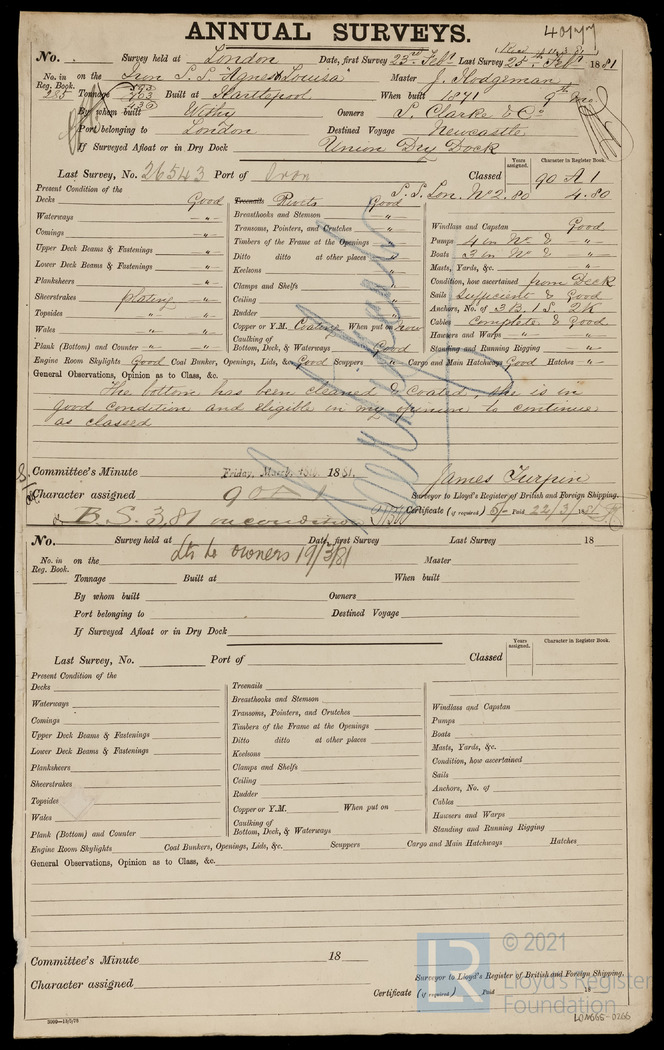 ANNUAL SURVEYS. 40177
(Rec'd 4.3.81)
No. Survey held at London Date, first Survey 23rd Feby Last Survey 25th Feby 1881
No. in Reg. Book. on the Iron S.S. "Agnes Louisa" Master J. Hodgeman
285 Tonnage 703 Built at Hartlepool When built 1871 9th mo
By whom built Withy Owners S. Clarke & Co
Port belonging to London Destined Voyage Newcastle
If Surveyed Afloat or in Dry Dock Union Dry Dock
Last Survey, No. 26543 Port of Iron Classed
Years assigned. Character in Register Book.
90 A 1
S.S. Lon. No 2. 80 4.80
Present Condition of the
Decks Good
Waterways "
Comings "
Upper Deck Beams & Fastenings "
Lower Deck Beams & Fastenings "
Planksheers "
Sheerstrakes plating "
Topsides "
Wales "
Plank (Bottom) and Counter "
Treenails Rivets Good
Breasthooks and Stemson "
Transoms, Pointers, and Crutches "
Timbers of the Frame at the Openings "
Ditto ditto at other places "
Keelsons
Clamps and Shelfs
Ceiling
Rudder
Copper or Y.M. Coating When put on now
Caulking of Bottom, Deck, & Waterways Good
Windlass and Capstan Good
Pumps 4 in No. & "
Boats 3 in No. & "
Masts, Yards, &c. "
Condition, how ascertained from Deck
Sails Sufficient & Good
Anchors, No. of 3 B. 1 S. 2 K
Cables Complete & Good
Hawsers and Warps "
Standing and Running Rigging "
Engine Room Skylights Good Coal Bunker, Openings, Lids, &c. Good Scuppers " Cargo and Main Hatchways Good Hatches "
General Observations, Opinion as to Class, &c.
The bottom has been cleaned & Coated, she is in
good condition and eligible in my opinion to continue
as classed
Committee's Minute Friday, March 18th 1881.
James Turpin
Character assigned 90 A 1 Surveyor to Lloyd's Register of British and Foreign Shipping.
B.S. 3,81 on condition Certificate (if required) 5/- Paid 22/3/1881
No. Survey held at Date, first Survey Last Survey 18
Lts to owners 19/3/81
No. in Reg. Book. on the Master
Tonnage Built at When built
By whom built Owners
Port belonging to Destined Voyage
If Surveyed Afloat or in Dry Dock
Last Survey, No. Port of Classed
Years assigned. Character in Register Book.
Present Condition of the
Decks
Waterways
Comings
Upper Deck Beams & Fastenings
Lower Deck Beams & Fastenings
Planksheers
Sheerstrakes
Topsides
Wales
Plank (Bottom) and Counter
Treenails
Breasthooks and Stemson
Transoms, Pointers, and Crutches
Timbers of the Frame at the Openings
Ditto ditto at other places
Keelsons
Clamps and Shelfs
Ceiling
Rudder
Copper or Y.M. When put on
Caulking of Bottom, Deck, & Waterways
Windlass and Capstan
Pumps
Boats
Masts, Yards, &c.
Condition, how ascertained
Sails
Anchors, No. of
Cables
Hawsers and Warps
Standing and Running Rigging
Engine Room Skylights Coal Bunkers, Openings, Lids, &c. Scuppers Cargo and Main Hatchways Hatches
General Observations, Opinion as to Class, &c.
Committee's Minute 18
Character assigned
Surveyor to Lloyd's Register of British and Foreign Shipping.
Certificate (if required) Paid 18
LR © 2021
Lloyd's Register
Foundation
LON666-0266